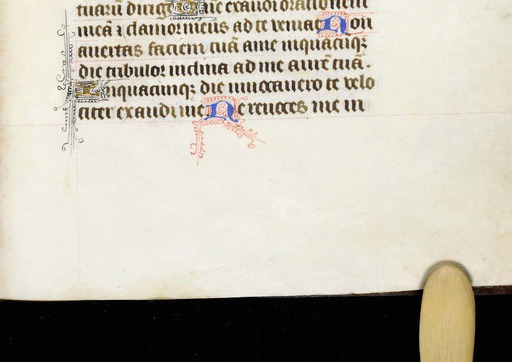 tuarū dirige Dñe exaudi orationem
meā ⁊ clamor meus ad te veniat Non
auertas faciem tuā a me inquacūqꝫ
die tribulor inclina ad me aurē tuā.
Inquacūqꝫ die inuocauero te velo
citer exaudi me Ne reuoces me in